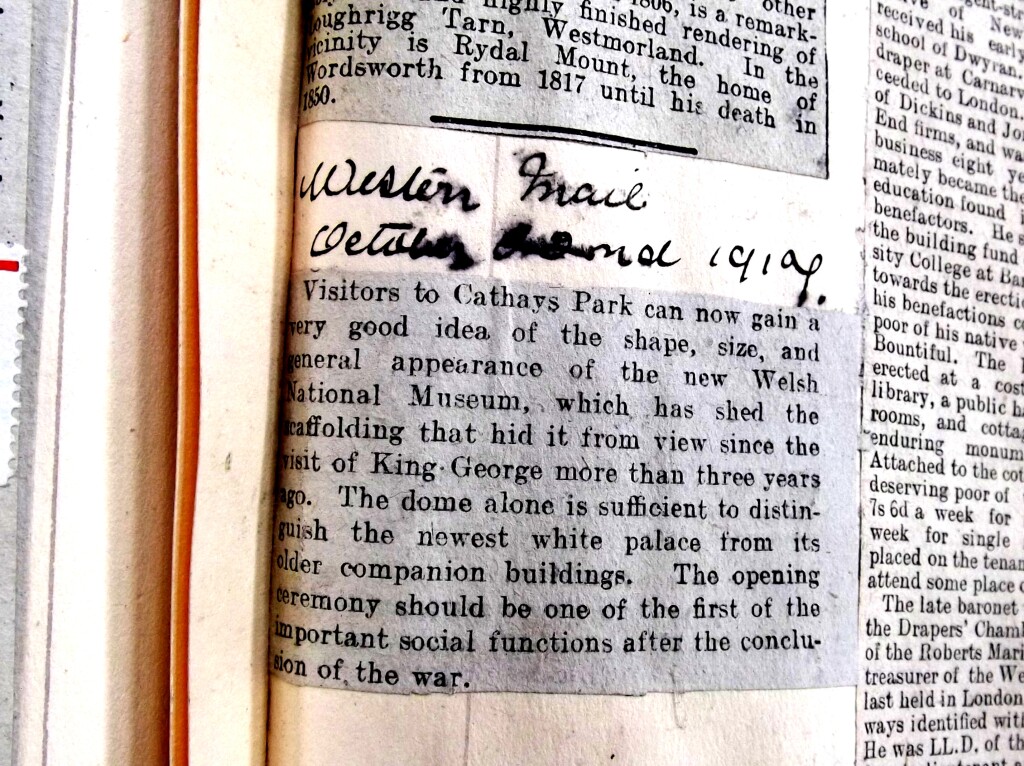 1806, is a remark-
highly finished rendering of
Loughrigg Tarn, Westmorland. In the
vicinity is Rydal Mount, the home of
Wordsworth from 1817 until his death in
1850.
Western Mail
October 2nd 1919.
Visitors to Cathays Park can now gain a
very good idea of the shape, size, and
general appearance of the new Welsh
National Museum, which has shed the
scaffolding that hid it from view since the
visit of King George more than three years
ago. The dome alone is sufficient to distin-
guish the newest white palace from its
older companion buildings. The opening
ceremony should be one of the first of the
important social functions after the conclu-
sion of the war.
of New
received his early
school of Dwyran.
draper at
ceeded to London.
of Dickins and
End firms, and
business eight
mately became the
education found
benefactors. He
the building fund
sity College at
towards the
his benefactions
poor of his native
Bountiful. The
erected at a cost
library, a public
rooms, and
enduring
Attached to the
deserving poor of
7s 6d a week for
week for single
placed on the
attend some place
The late baronet
the Drapers'
of the Roberts
treasurer of the
last held in London
ways identified
He was LL.D. of the